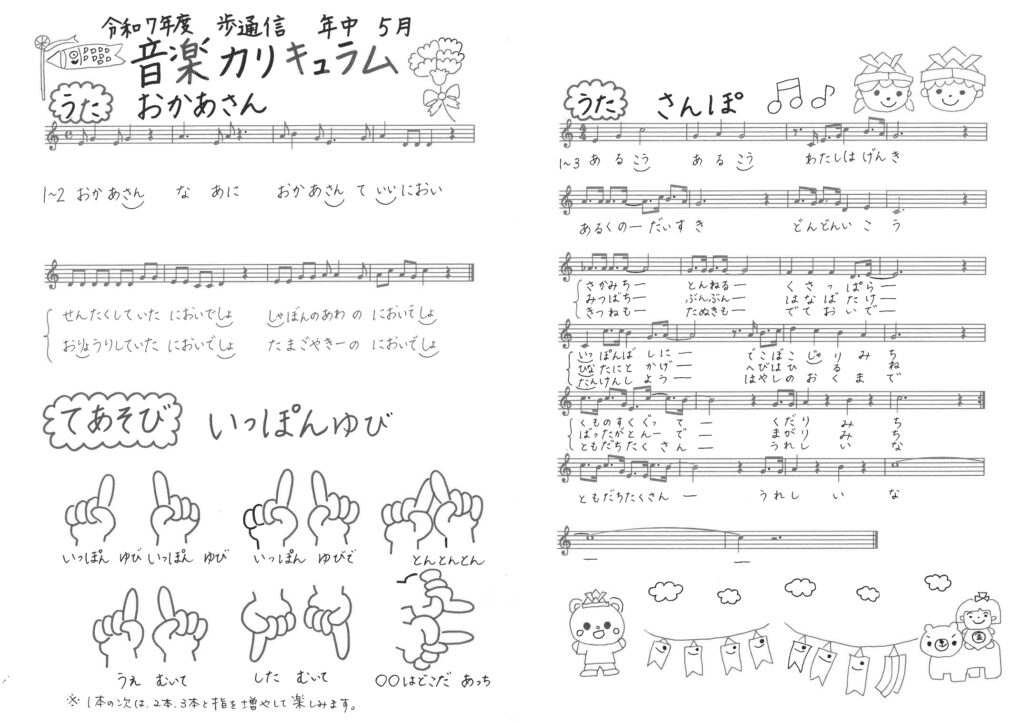 令和7年度 歩通信 年中 5月
音楽カリキュラム
うた おかあさん
1~2 おかあさん な あに おかあさん て いいにおい
せんたくしていた においでしょ しゃぼんのあわ の においでしょ
おりょうりしていた においでしょ たまごやきーの においでしょ
てあそび いっぽんゆび
いっぽん ゆび いっぽん ゆび いっぽん ゆびで とんとんとん
うえ むいて したむいて 〇〇はどこだ あっち
※1本の次は、2本、3本と指を増やして楽しみます。
うた さんぽ
1~3 あ る こう あ る こう わたしは げんき
あるくのー だいす き どんどんい こ う
さかみちー とんねるー く さ っ ぱらー
みつばちー ぶんぶんー は な ば たけー
きつねもー たぬきもー で て お い でー
いっぽんば しにー でこぼこ じゃ り み ち
ひなたにと かげー へびは ひ る ね
たんけんし ようー はやしの お く ま で
くものすくぐっ てー く だ り み ち
ばったがとんー でー ま が り み ち
ともだちたく さんー う れ し い な
ともだちたくさん ー う れ し い な